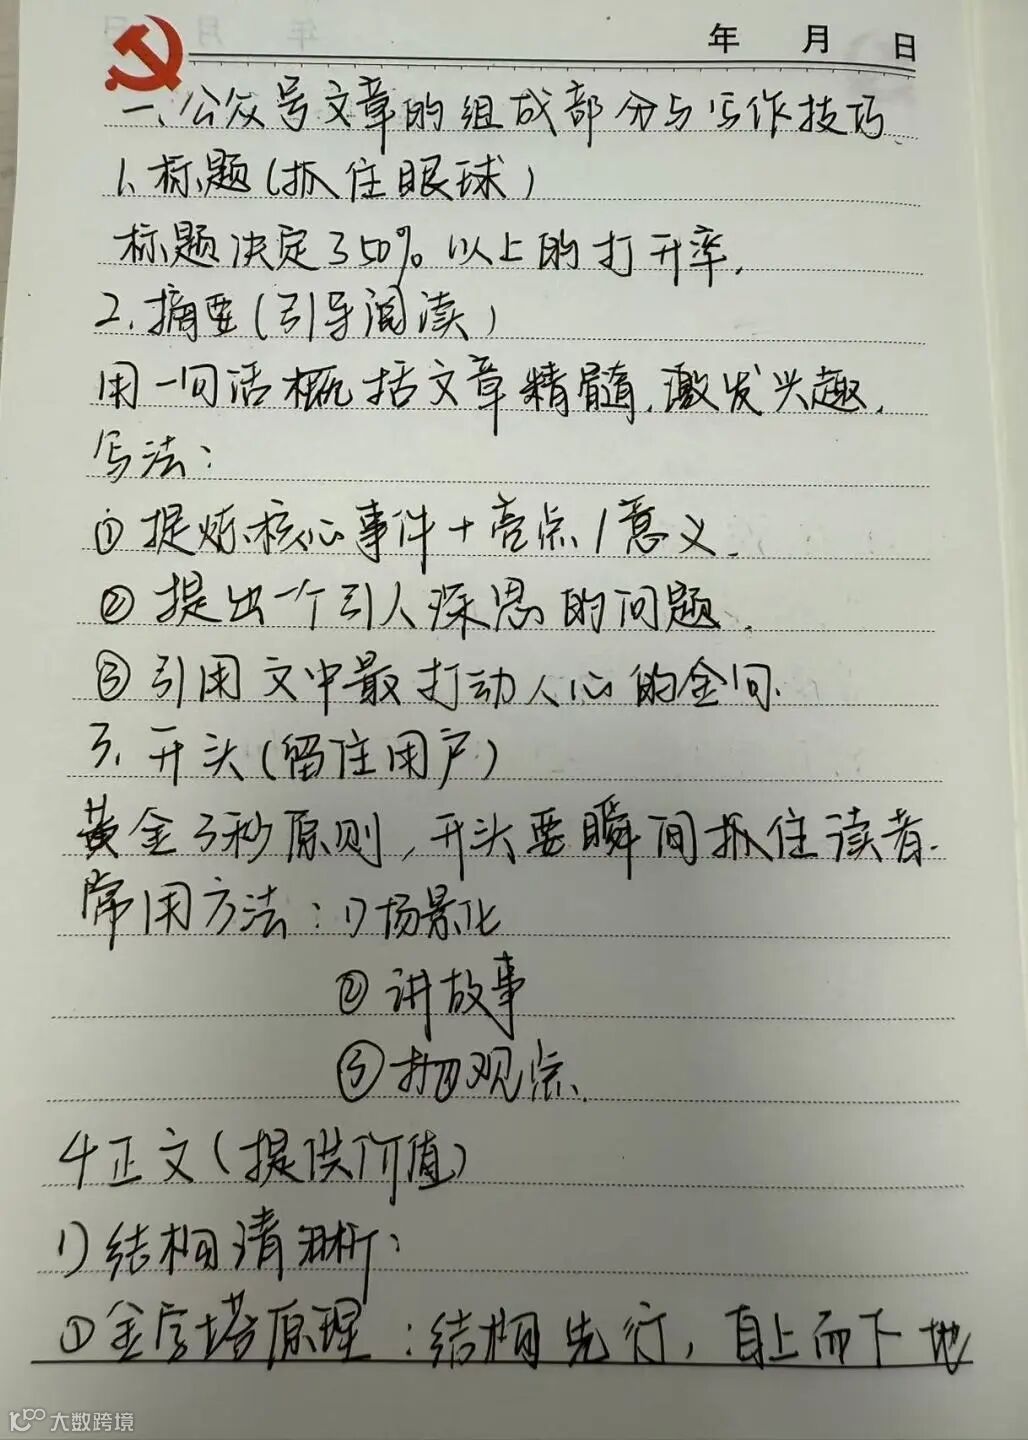 年 月 日
一、公众号文章的组成部分与写作技巧
1、标题(抓住眼球)
标题决定了50%以上的打开率.
2、摘要(引导阅读)
用一句话概括文章精髓,激发兴趣.
写法:
①提炼核心事件+亮点/意义.
②提出一个引人深思的问题.
③引用文中最打动人心的金句.
3、开头(留住用户)
黄金3秒原则,开头要瞬间抓住读者.
常用方法:1)场景化
②讲故事
③抛观点.
4正文(提供价值)
1)结构清晰:
①金字塔原理:结构先行,自上而下地
大数跨境